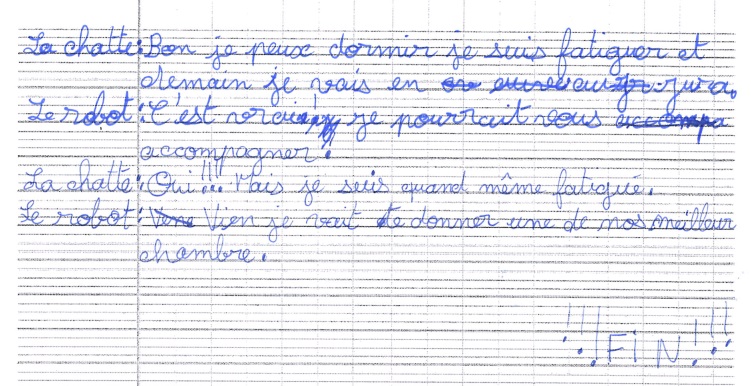 La chatte : Bon je peux dormir je suis fatiguer et
demain je vais en jura.
Le robot : C'est vrai je pourrait vous
accompagner !
La chatte : Oui !!! Mais je suis quand même fatigué.
Le robot : Vien je vait te donner une de nos meilleur
chambre.
!!! FiN !!!